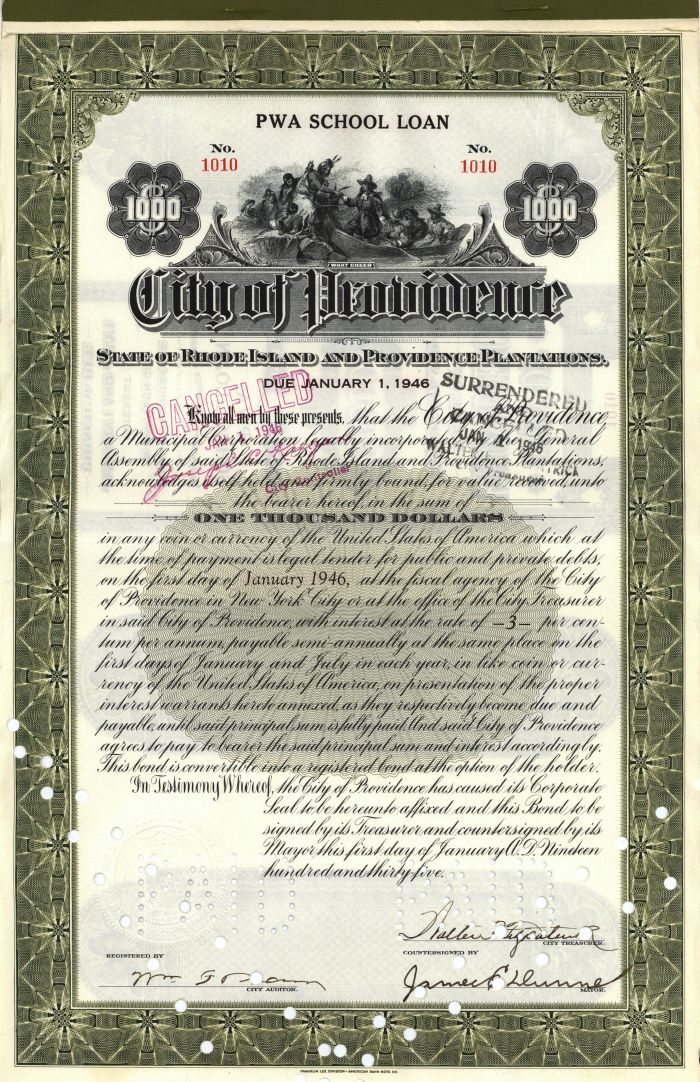 PWA SCHOOL LOAN
No. 1010
No. 1010
1000
1000
WHAT CHEER
City of Providence
STATE OF RHODE ISLAND AND PROVIDENCE PLANTATIONS.
DUE JANUARY 1, 1946
CANCELLED
SURRENDERED
AND
JAN 1946
City Controller
Know all men by these presents, that the City of Providence
a Municipal Corporation legally incorporated by the General
Assembly of said State of Rhode Island and Providence Plantations,
acknowledges itself held and firmly bound, for value received, unto
the bearer hereof, in the sum of
ONE THOUSAND DOLLARS
in any coin or currency of the United States of America which at
the time of payment is legal tender for public and private debts,
on the first day of January 1946, at the fiscal agency of the City
of Providence in New York City or at the office of the City Treasurer
in said City of Providence, with interest at the rate of -3- per cen-
tum per annum, payable semi-annually at the same place on the
first days of January and July in each year, in like coin or cur-
rency of the United States of America, on presentation of the proper
interest warrants hereto annexed, as they respectively become due and
payable, until said principal sum is fully paid. And said City of Providence
agrees to pay to bearer the said principal sum and interest accordingly.
This bond is convertible into a registered bond at the option of the holder.
In Testimony Whereof, the City of Providence has caused its Corporate
Seal to be hereunto affixed and this Bond to be
signed by its Treasurer and countersigned by its
Mayor this first day of January A.D. Nineteen
hundred and thirty-five.
PAID
PAID
CITY TREASURER.
REGISTERED BY
COUNTERSIGNED BY
CITY AUDITOR.
James E Dunne
MAYOR.
FRANKLIN LEE DIVISION-AMERICAN BANK NOTE CO.